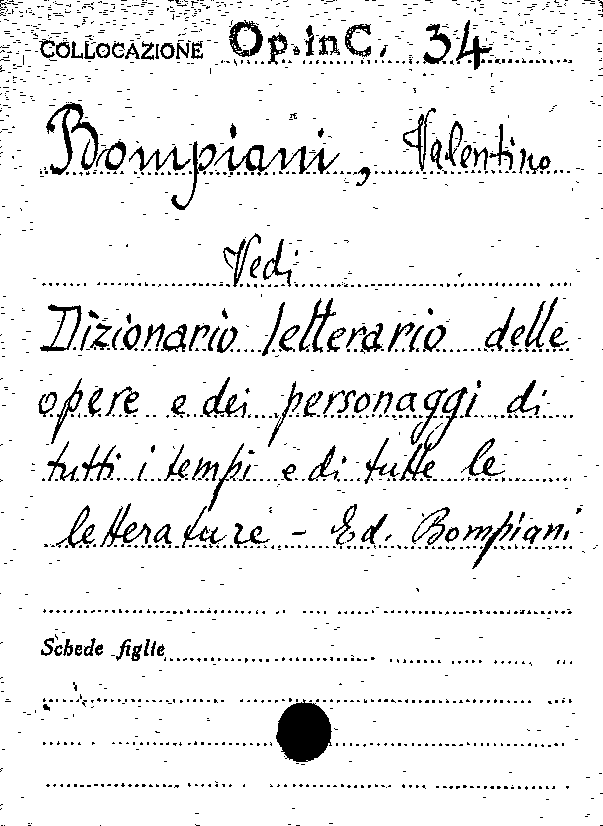 COLLOCAZIONE Op.inC. 34
Bompiani, Valentino
Vedi
Dizionario letterario delle
opere e dei personaggi di
tutti i tempi e di tutte le
letterature - Ed. Bompiani
Schede figlie